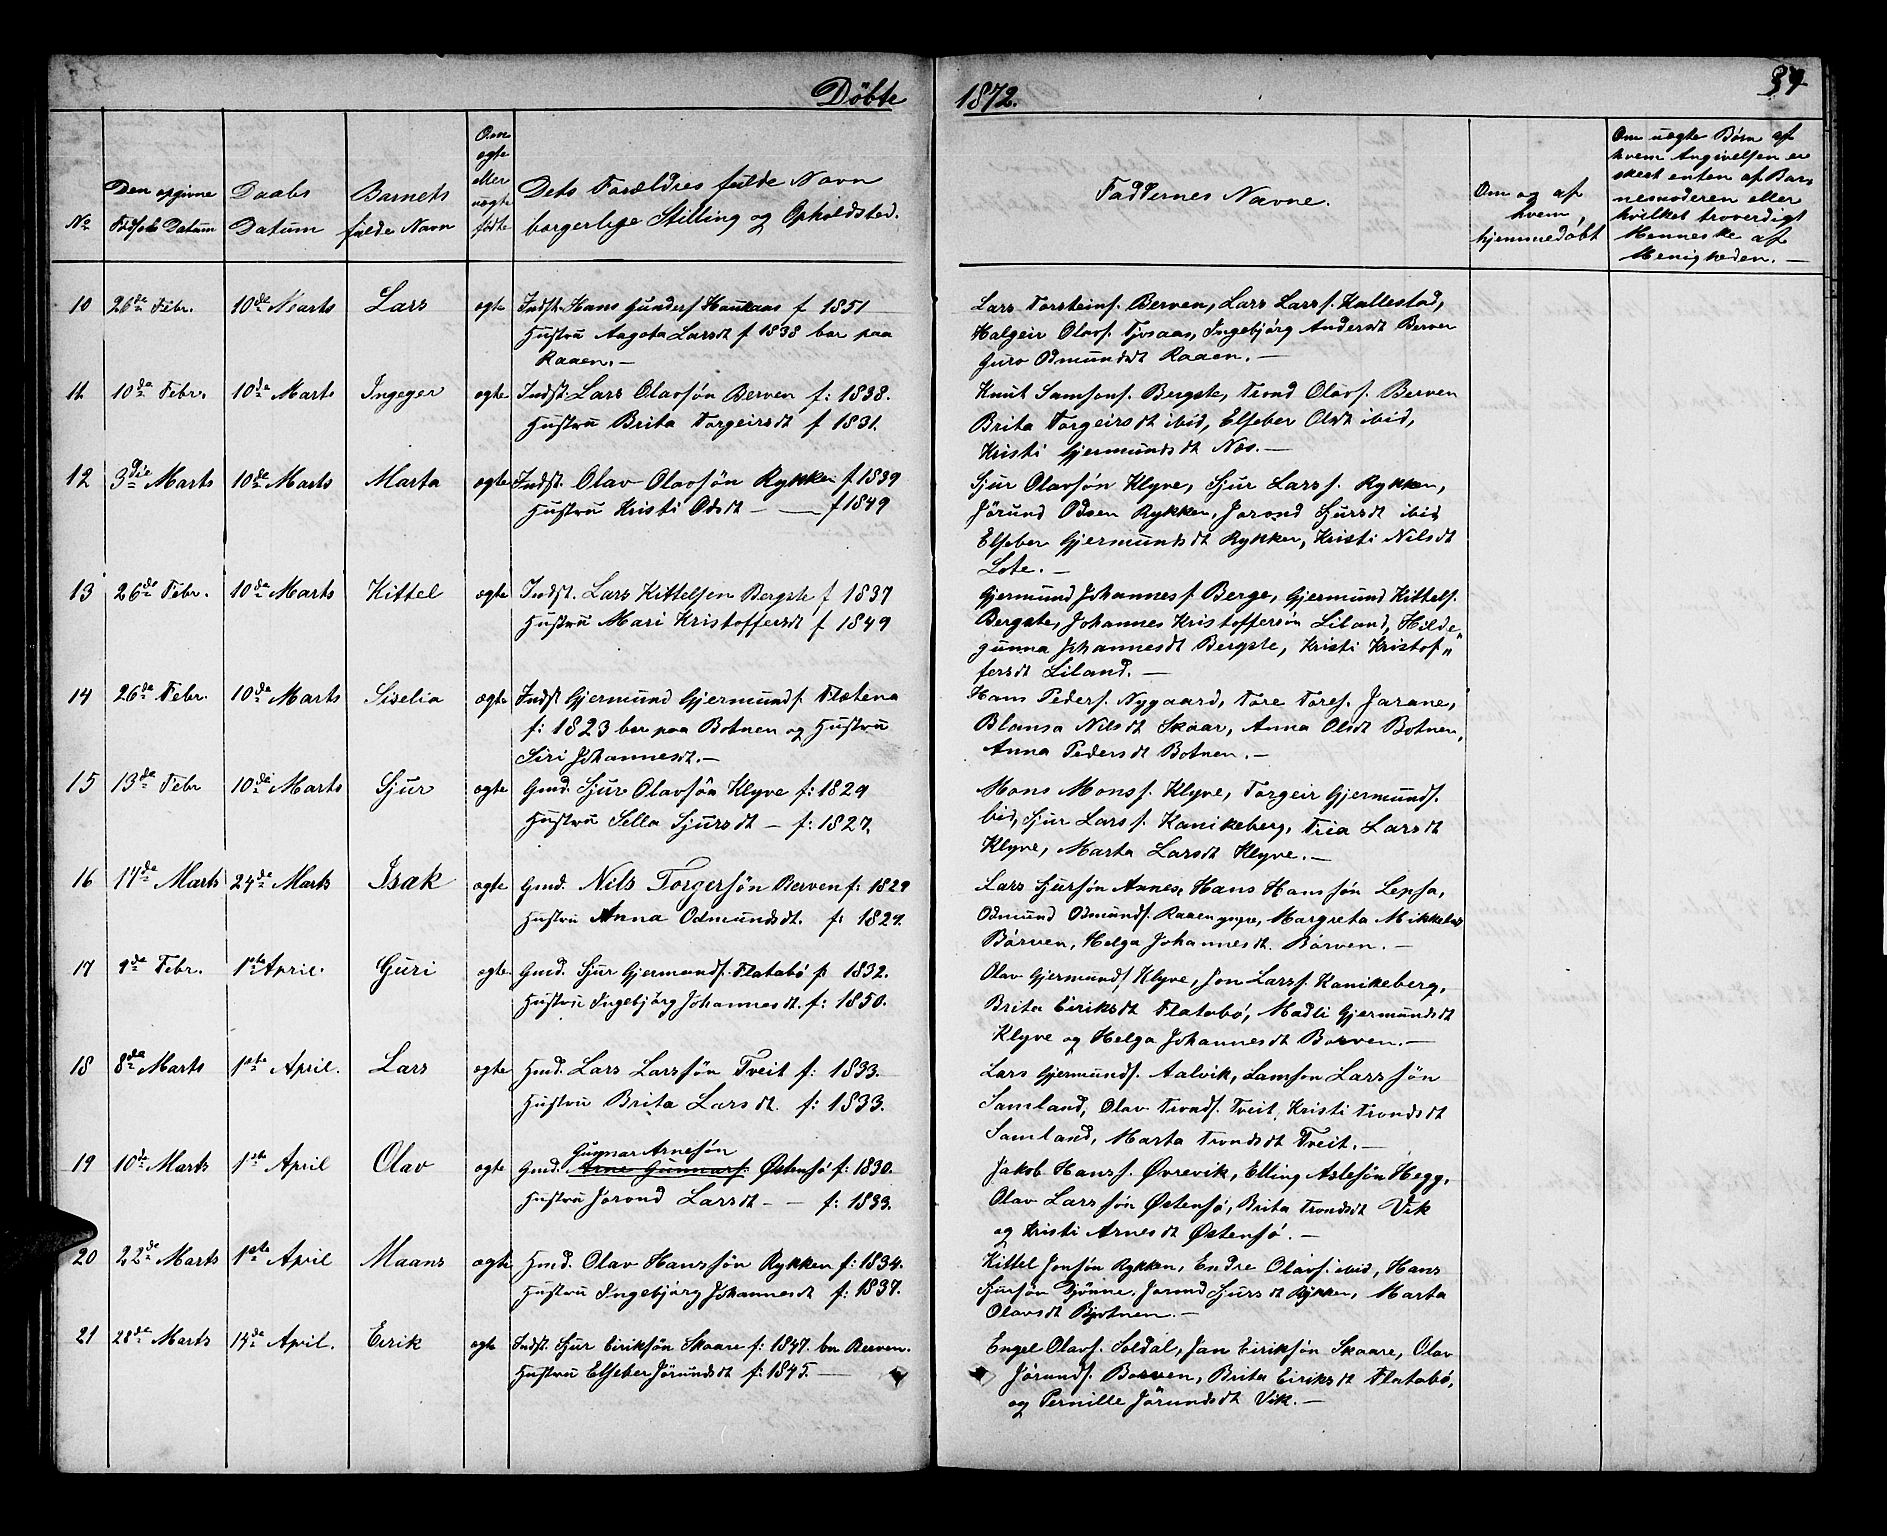 Döbte
1872.
34
No
Den opgivne Födsels Datum
Daabs Datum
Barnets fulde Navn
Om ægte eller uægte födte
Dets Forældres fulde Navn borgerlige Stilling og Opholdsted.
Faddernes Navne.
Om og af hvem hjemmedöbt
Om uægte Börn af hvem Angivelsen er skeet enten af Barnesmoderen eller hvilket troverdigt Menneske af Menigheden. —
10 26de Febr. 10de Marts Lars ægte Indst. Hans Gunders. f 1851
Hustru Aagota Larsdt f 1838 bor paa
Raaen. —
Lars Torsteins. Berven, Lars Larss. Kallestad,
Halgeir Olavs. Tjosaas, Ingebjörg Andersdt Berven
Guro Odmundsdt Raaen. —
11 10de Febr. 10de Marts Ingeger ægte Indst. Lars Olavsön Berven f: 1838.
Hustru Brita Torgeirsdt f 1831.
Knut Samsons. Bergste, Trond Olavs. Berven
Brita Torgeirsdt ibid, Elseber Olsdt ibid,
Kristi Gjermundsdt Nes. —
12 3die Marts 10de Marts Marta ægte Indst. Olav Olavsön Rykken f 1839
Hustru Kristi Odsdt — — f 1849
Sjur Olavsön Klyve, Sjur Larss. Rykken,
Jörund Odsen Rykken, Jorond Sjursdt ibid
Elseber Gjermundsdt Rykken, Kristi Nilsdt
Lote. —
13 26de Febr. 10de Marts Kittel ægte Indst. Lars Kittelsen Bergste f 1837
Hustru Mari Kristoffersdt f 1849
Gjermund Johanness. Berge, Gjermund Kittels.
Bergste, Johannes Kristoffersön Liland, Hilde„
gunna Johannesdt Bergste, Kristi Kristof„
fersdt Liland. —
14 26de Febr. 10de Marts Siselia ægte Indst Gjermund Gjermunds. Flætena
f: 1823 bor paa Botnen og Hustru
Siri Johannesdt. —
Hans Peders. Nygaard, Tore Tores. Jarane,
Blansa Nilsdt Skaar, Anna Olsdt Botnen,
Anna Pedersdt Botnen. —
15 13de Febr 10de Marts Sjur ægte Gmd. Sjur Olavsön Klyve f: 1829
Hustru Sella Sjursdt — f: 1827.
Mons Monss. Klyve, Torgeir Gjermunds.
bid, Sjur Larss. Kanikeberg, Tria Larsdt
Klyve, Marta Larsdt Klyve. —
16 17de Marts 24de Marts Isak ægte Gmd. Nils Torgersön Berven f: 1829
Hustru Anna Odmundsdt. f: 1829.
Lars Sjursön Aunes, Hans Hanssön Lepsa,
Odmund Odmunds. Raaen yngre, Margreta Mikkelsdt
Börven, Helga Johannesdt. Börven. —
17 9de Febr. 1ste April. Guri ægte Gmd. Sjur Gjermunds. Flatabö f: 1832.
Hustru Ingebjörg Johannesdt. f: 1850.
Olav Gjermunds. Klyve, Jon Larss. Kanikeberg,
Brita Eiriksdt Flatabö, Madli Gjermundsdt
Klyve og Helga Johannesdt Borven. —
18 8de Marts 1ste April. Lars ægte Gmd. Lars Larssön Tveit f: 1833.
Hustru Brita Larsdt. f: 1833.
Lars Gjermunds. Aalvik, Samson Larssön
Samland, Olav Tronds. Tveit, Kristi Trondsdt
Samland, Marta Trondsdt Tveit. —
Gunnar Arnesön
19 10de Marts 1ste April Olav ægte Gmd. Arne Gunnars. Östensö f: 1830.
Hustru Jorond Larsdt — — f: 1833.
Jakob Hanss. Övrevik, Elling Aslesön Hegg,
Olav Larssön Östensö, Brita Trondsdt Vik
og Kristi Arnesdt Östensö. —
20 22de Marts 1ste April Maans ægte Gmd. Olav Hanssön Rykken f: 1834.
Hustru Ingebjörg Johannesdt f: 1837.
Kittel Jonsön Rykken, Endre Olavs. ibid, Hans
Sjursön Gjönne, Jorond Sjursdt Rykken, Marta
Olavsdt Bjotnen. —
21 28de Marts 14de April. Eirik ægte Indst. Sjur Eiriksön Skaare f: 1847. bor Berven.
Hustru Elseber Jörundsdt f: 1845. —
Engel Olavs. Soldal, Jan Eiriksön Skaare, Olav
Jörunds. Borven, Brita Eiriksdt Flatabö,
og Pernille Jörundsdt Vik. —